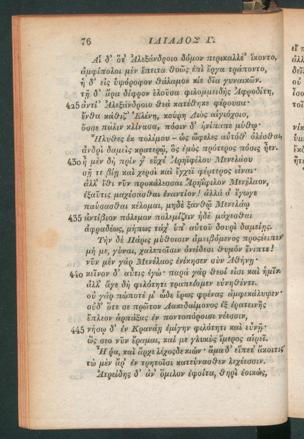 76 ΙΛΙΑΔΟΣ Γ.
Αἱ δ' ὅτ' Ἀλεξάνδροιο δόμον περικαλλέ' ἵκοντο,
ἀμφίπολοι μὲν ἔπειτα θοῶς ἐπὶ ἔργα τράποντο,
ἡ δ' εἰς ὑψόροφον θάλαμον κίε δῖα γυναικῶν.
τῇ δ' ἄρα δίφρον ἑλοῦσα φιλομμειδὴς Ἀφροδίτη,
425 ἀντί' Ἀλεξάνδροιο θεὰ κατέθηκε φέρουσα·
ἔνθα κάθιζ' Ἑλένη, κούρη Διὸς αἰγιόχοιο,
ὄσσε πάλιν κλίνασα, πόσιν δ' ἠνίπαπε μύθῳ·
Ἤλυθες ἐκ πολέμου — ὡς ὤφελες αὐτόθ' ὀλέσθαι,
ἀνδρὶ δαμεὶς κρατερῷ, ὃς ἐμὸς πρότερος πόσις ἦεν.
430 ἦ μὲν δὴ πρίν γ' εὔχε' Ἀρηϊφίλου Μενελάου
σῇ τε βίῃ καὶ χερσὶ καὶ ἔγχεϊ φέρτερος εἶναι·
ἀλλ' ἴθι νῦν προκάλεσσαι Ἀρηΐφιλον Μενέλαον,
ἐξαῦτις μαχέσασθαι ἐναντίον! ἀλλά σ' ἔγωγε
παύσασθαι κέλομαι, μηδὲ ξανθῷ Μενελάῳ
435 ἀντίβιον πόλεμον πολεμίζειν ἠδὲ μάχεσθαι
ἀφραδέως, μήπως τάχ' ὑπ' αὐτοῦ δουρὶ δαμείης.
Τὴν δὲ Πάρις μύθοισιν ἀμειβόμενος προςέειπεν·
μή με, γύναι, χαλεποῖσιν ὀνείδεσι θυμὸν ἔνιπτε!
νῦν μὲν γὰρ Μενέλαος ἐνίκησεν σὺν Ἀθήνῃ·
440 κεῖνον δ' αὖτις ἐγώ· παρὰ γὰρ θεοί εἰσι καὶ ἡμῖν.
ἀλλ' ἄγε δὴ φιλότητι τραπείομεν εὐνηθέντε·
οὐ γὰρ πώποτέ μ' ὧδε ἔρως φρένας ἀμφεκάλυψεν·
οὐδ' ὅτε σε πρῶτον Λακεδαίμονος ἐξ ἐρατεινῆς
ἔπλεον ἁρπάξας ἐν ποντοπόροισι νέεσσιν,
445 νήσῳ δ' ἐν Κραναῇ ἐμίγην φιλότητι καὶ εὐνῇ·
ὥς σεο νῦν ἔραμαι, καί με γλυκὺς ἵμερος αἱρεῖ.
Ἦ ῥα, καὶ ἄρχε λέχοςδε κιών· ἅμα δ' εἵπετ' ἄκοιτις·
τὼ μὲν ἄρ' ἐν τρητοῖσι κατεύνασθεν λεχέεσσιν.
Ἀτρείδης δ' ἀν' ὅμιλον ἐφοίτα, θηρὶ ἐοικώς,